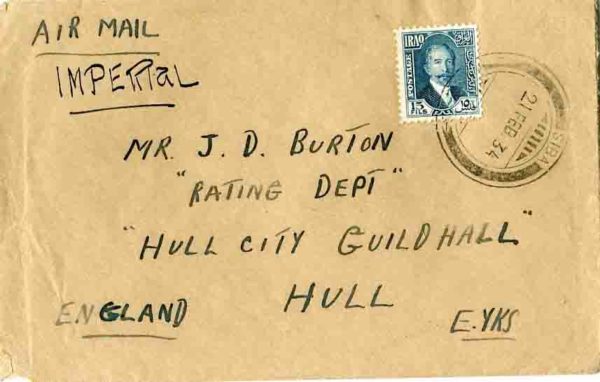 AIR MAIL
IMPERIAL
IRAQ
POSTAGE
15
FILS
١٥
SIBA
21 FEB 34
MR. J. D. BURTON
"RATING DEPT"
"HULL CITY GUILDHALL"
HULL
ENGLAND
E. YKS